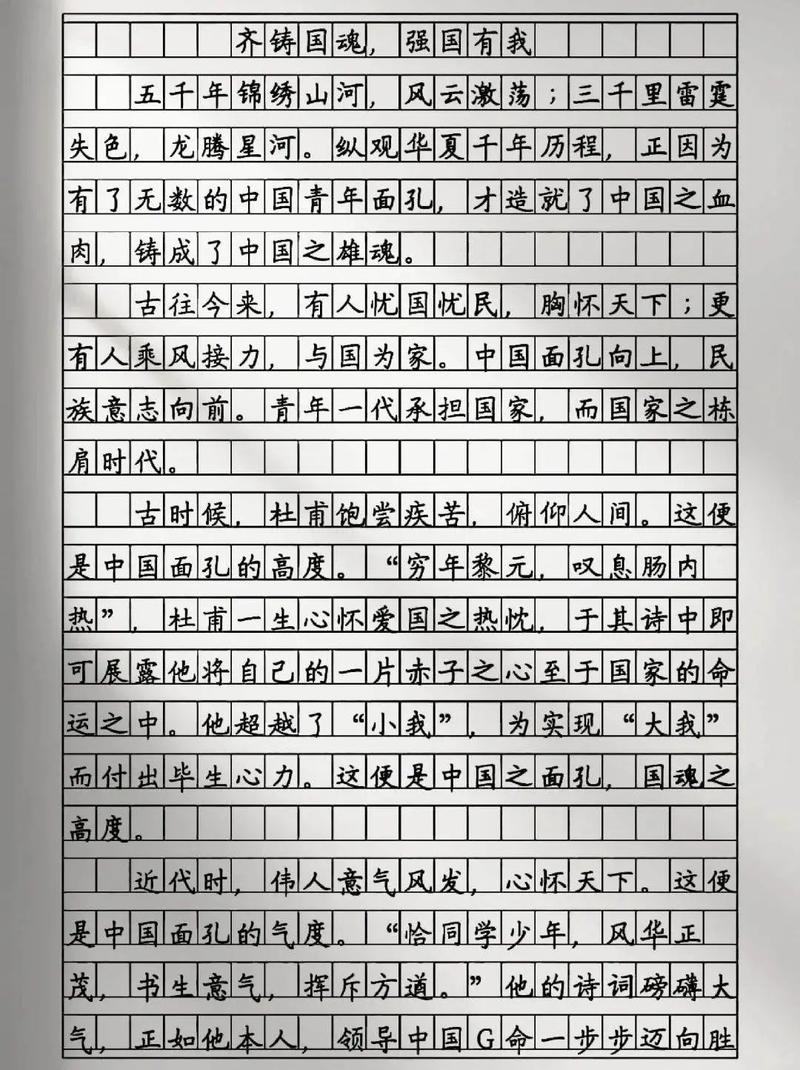 齐铸国魂，强国有我
五千年锦绣山河，风云激荡；三千里雷霆
失色，龙腾星河。纵观华夏千年历程，正因为
有了无数的中国青年面孔，才造就了中国之血
肉，铸成了中国之雄魂。
古往今来，有人忧国忧民，胸怀天下；更
有人乘风接力，与国为家。中国面孔向上，民
族意志向前。青年一代承担国家，而国家之栋
肩时代。
古时候，杜甫饱尝疾苦，俯仰人间。这便
是中国面孔的高度。“穷年黎元，叹息肠内
热”，杜甫一生心怀爱国之热忱，于其诗中即
可展露他将自己的一片赤子之心至于国家的命
运之中。他超越了“小我”，为实现“大我”
而付出毕生心力。这便是中国之面孔，国魂之
高度。
近代时，伟人意气风发，心怀天下。这便
是中国面孔的气度。“恰同学少年，风华正
茂，书生意气，挥斥方道。”他的诗词磅礴大
气，正如他本人，领导中国G命一步步迈向胜